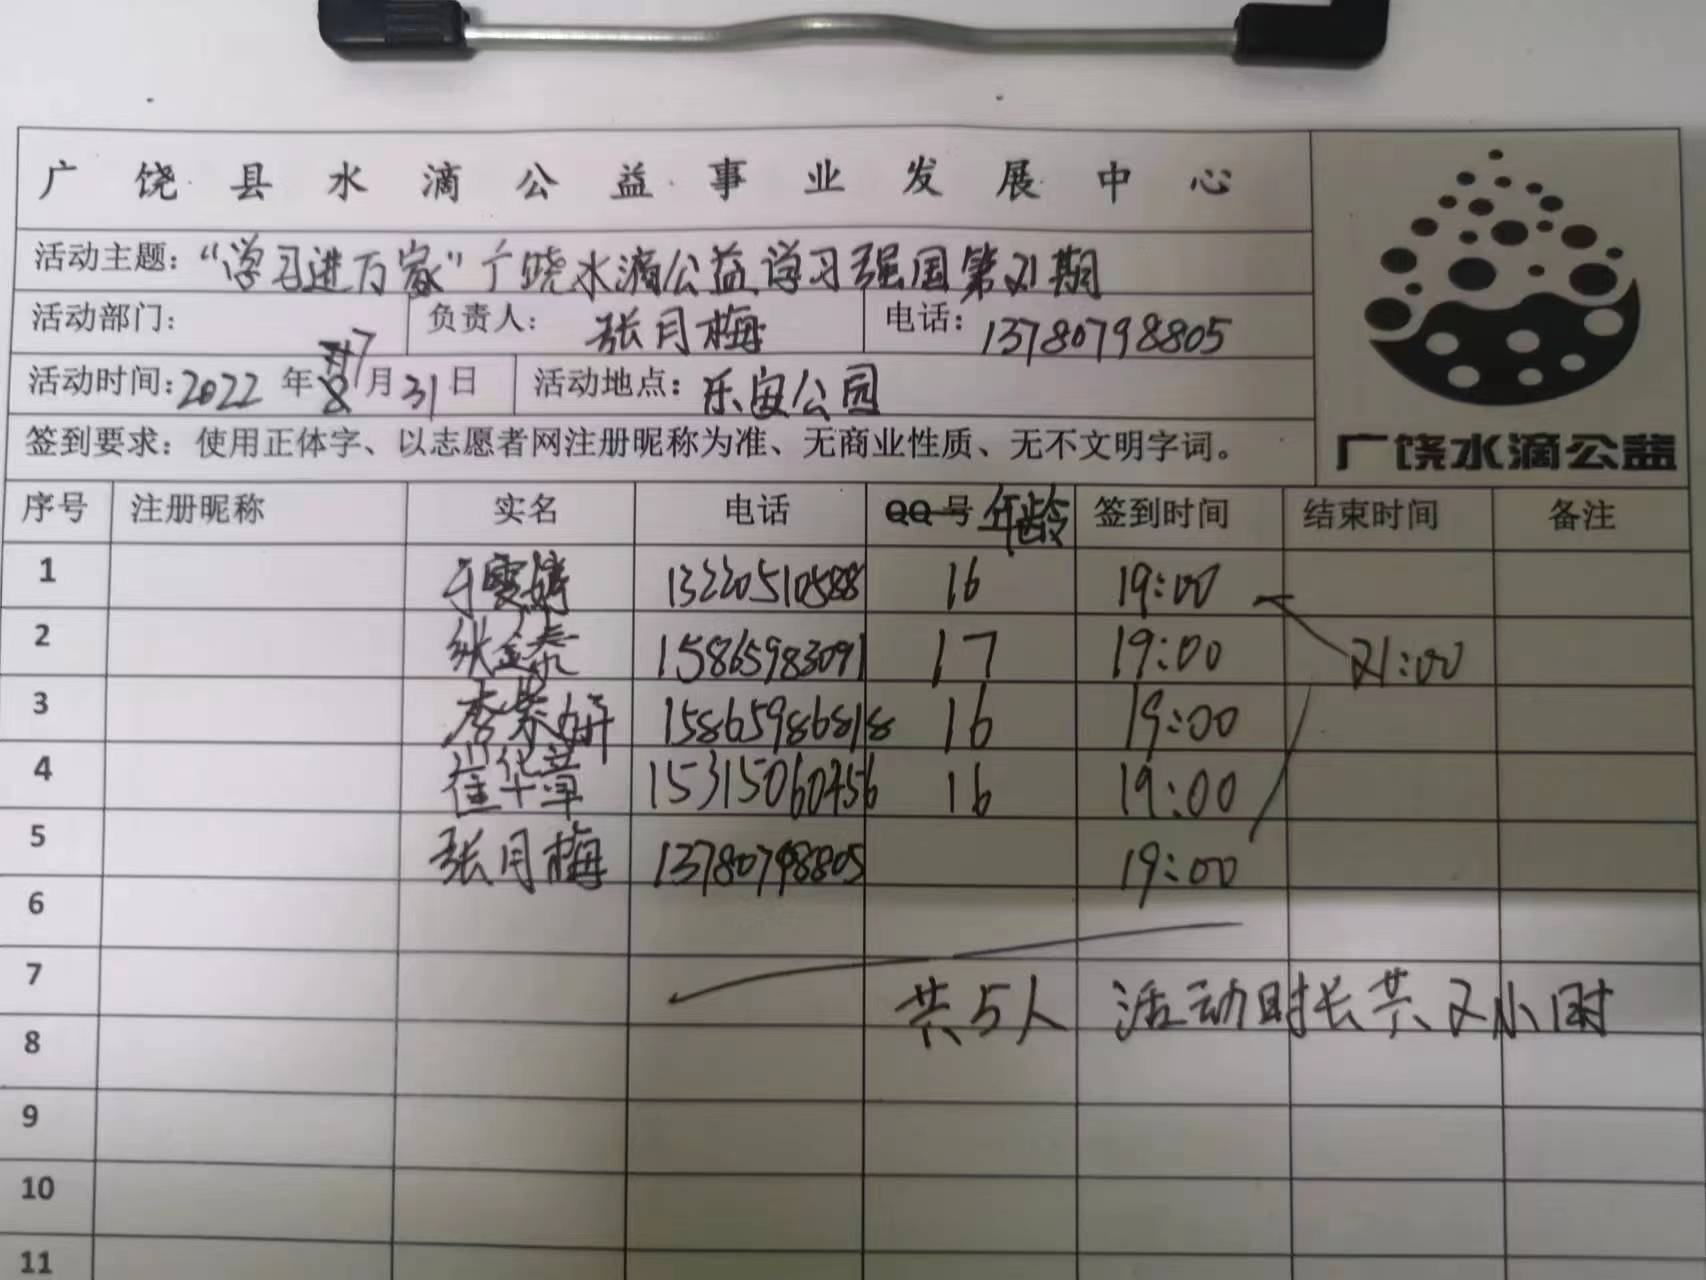 广饶县水滴公益事业发展中心
活动主题：“学习进万家”广饶水滴公益学习强国第21期
活动部门： 负责人：张月梅 电话：13780798805
活动时间：2022年7月31日 活动地点：乐安公园
签到要求：使用正体字、以志愿者网注册昵称为准、无商业性质、无不文明字词。
广饶水滴公益
序号 注册昵称 实名 电话 QQ号 年龄 签到时间 结束时间 备注
1 于雯 13220510588 16 19:00
2 张金泰 15865983091 17 19:00 21:00
3 李 妍 15865986818 16 19:00
4 崔华章 15315060456 16 19:00
5 张月梅 13780798805 19:00
6
7 共5人 活动时长共2小时
8
9
10
11